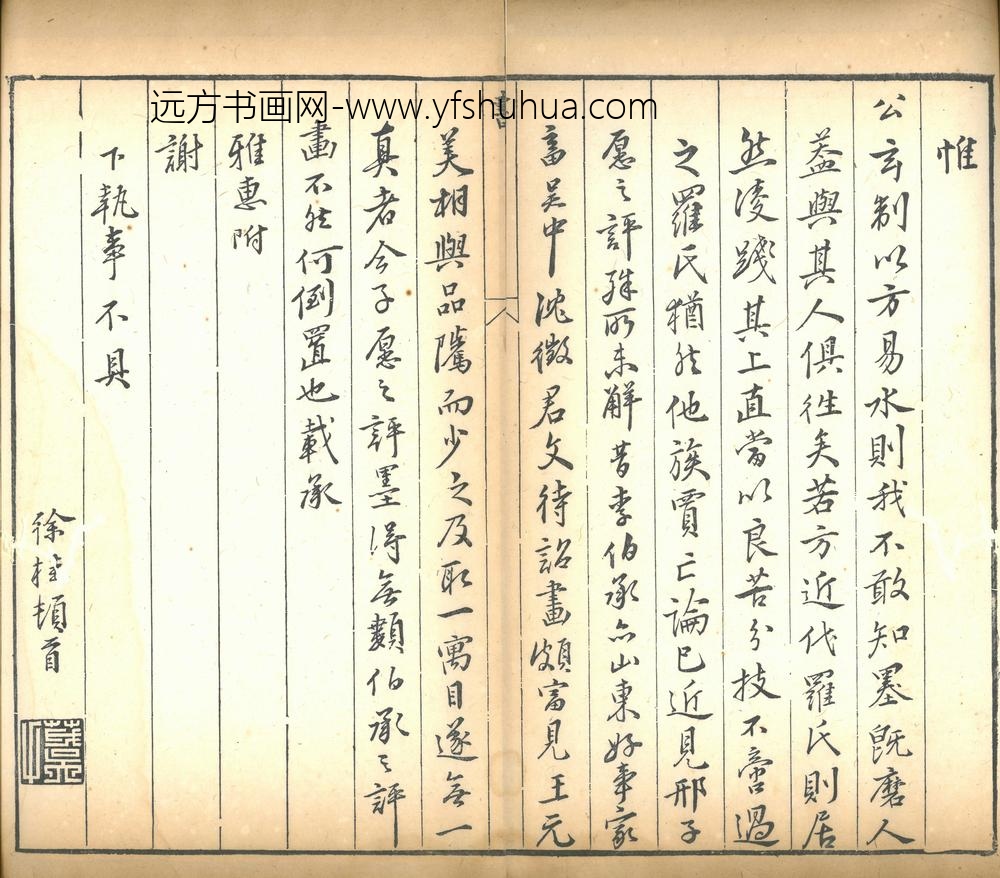 远方书画网-www.yfshuhua.com
惟
公玄制以方易水則我不敢知墨旣磨人
葢與其人俱徃矣若方近代羅氏則居
然淩踐其上直當以良苦分技不啻過
之羅氏猶然他族賈亡論已近見邢子
愿之評殊所未解昔李伯承亦山東好事家
畜吳中沈徵君文待詔畫頗富見王元
美相與品隲而少之及取一寓目遂無一
真者今子愿之評墨得無類伯承之評
畫不然何倒置也載承
雅惠附
謝
下執事不具
徐桂頓首